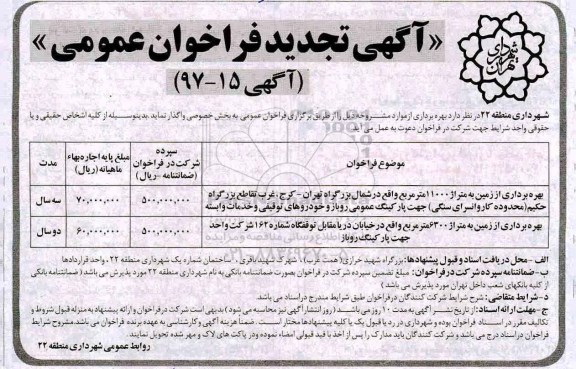 «آگهی تجدید فراخوان عمومی»
(آگهی ۱۵-۹۷)
شهرداری تهران
شهرداری منطقه ۲۲ در نظر دارد بهره برداری از موارد مشروحه ذیل را از طریق برگزاری فراخوان عمومی به بخش خصوصی واگذار نماید. بدینوسیله از کلیه اشخاص حقیقی و یا
حقوقی واجد شرایط جهت شرکت در فراخوان دعوت به عمل می آید.
موضوع فراخوان
سپرده شرکت در فراخوان (ضمانتنامه -ریال)
مبلغ پایه اجاره بهاء ماهیانه (ریال)
مدت
بهره برداری از زمین به متراژ ۱۱۰۰۰ مترمربع واقع در شمال بزرگراه تهران - کرج، غرب تقاطع بزرگراه
حکیم (محدوده کاروانسرای سنگی) جهت پارکینگ عمومی روباز و خودروهای توقیفی و خدمات وابسته
۵۰۰,۰۰۰,۰۰۰
۷۰,۰۰۰,۰۰۰
سه سال
بهره برداری از زمین به متراژ ۶۳۰۰ مترمربع واقع در خیابان دریا مقابل توقفگاه شماره ۱۶۲ شرکت واحد
جهت پارکینگ روباز
۵۰۰,۰۰۰,۰۰۰
۶۰,۰۰۰,۰۰۰
دو سال
الف - محل دریافت اسناد و قبول پیشنهادها: بزرگراه شهید خرازی (همت غرب)، شهرک شهید باقری، ساختمان شماره یک شهرداری منطقه ۲۲، واحد قراردادها
ب- ضمانتنامه سپرده شرکت در فراخوان: مبلغ تضمین سپرده شرکت در فراخوان بصورت ضمانتنامه بانکی به نام شهرداری منطقه ۲۲ مورد پذیرش می باشد (ضمانتنامه بانکی
از کلیه بانکهای شعب داخل تهران مورد پذیرش می باشد)
د- شرایط متقاضی: شرح شرایط شرکت کنندگان در فراخوان طبق شرایط مندرج در اسناد می باشد.
ج- مهلت ارائه اسناد: از تاریخ نشر آگهی به مدت ۱۰ روز می باشد (روز انتشار آگهی نیز محاسبه می شود) بدیهی است شرکت در فراخوان و ارائه پیشنهاد به منزله قبول شروط و
تکالیف مقرر در اسناد فراخوان بوده و شهرداری در رد یا قبول یک یا کلیه پیشنهادها مختار است. ضمنا هزینه آگهی و کارشناسی به عهده برنده فراخوان می باشد. مشروح شرایط
فراخوان در اسناد درج می باشد و شرکت کنندگان باید مدارک را پس از اخذ با قید قبولی امضاء نموده و در پاکت های لاک و مهر شده تحویل نمایند.
روابط عمومی شهرداری منطقه ۲۲